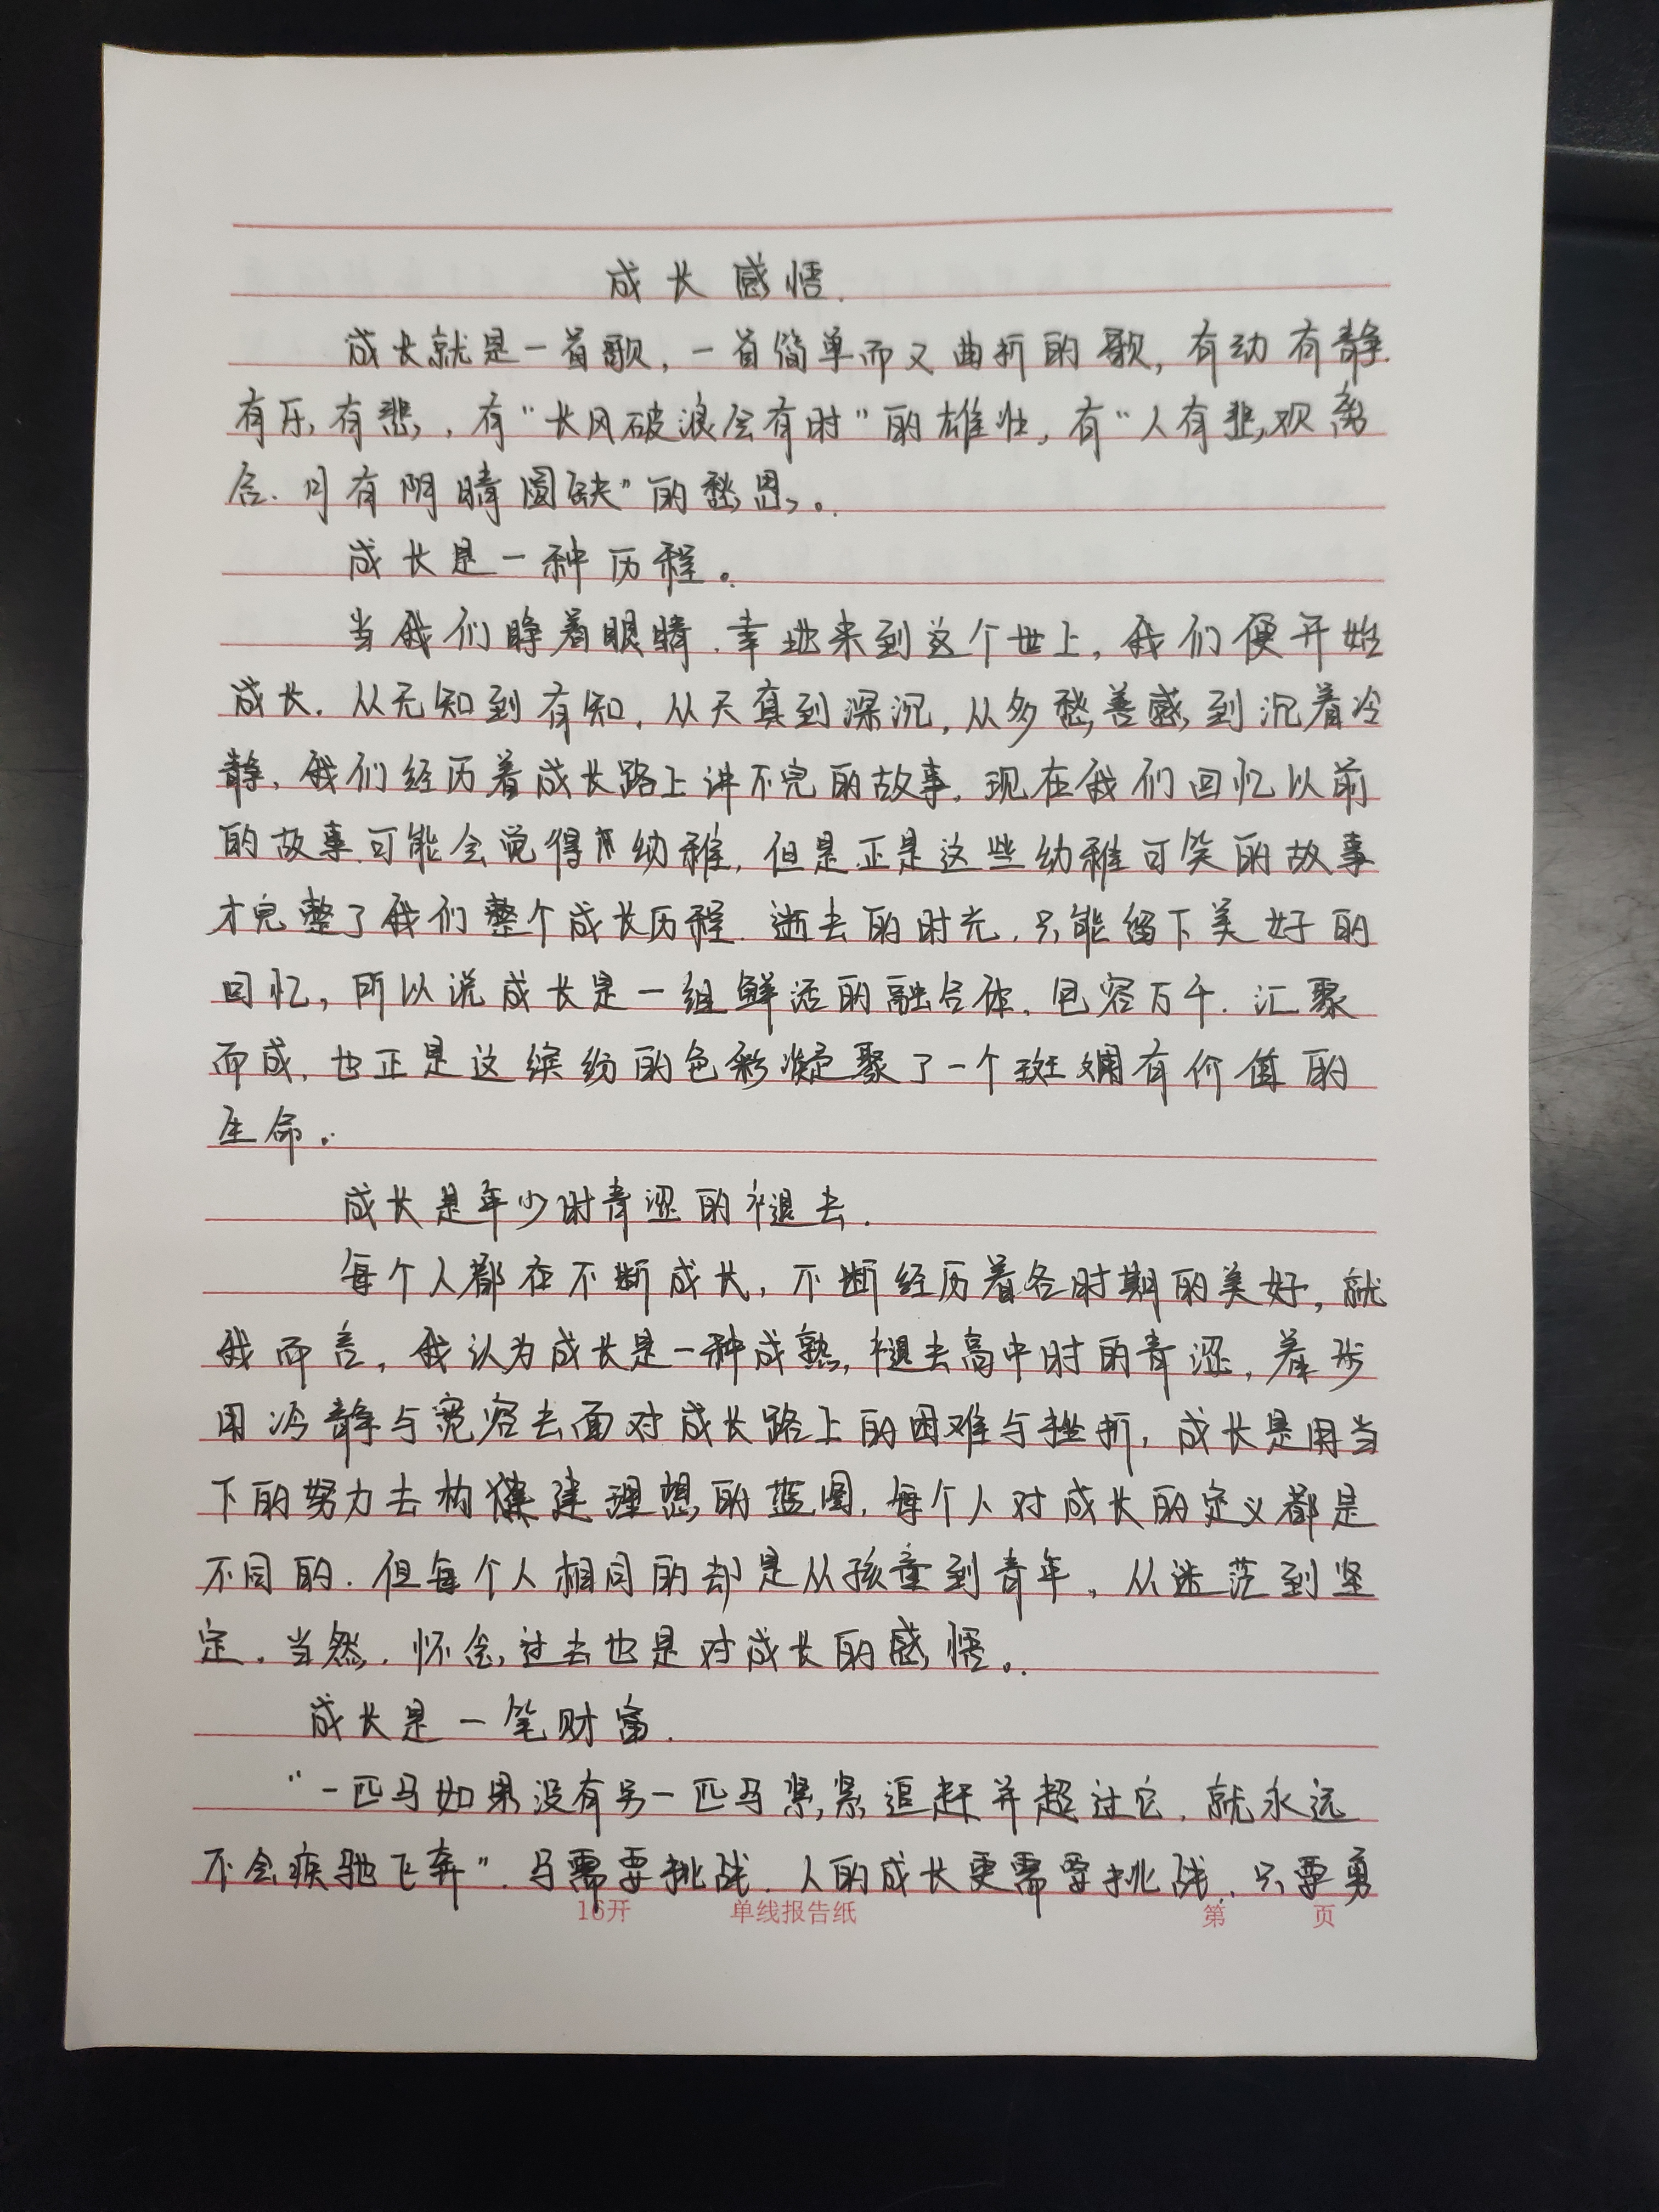 成长感悟.
成长就是一首歌，一首简单而又曲折的歌，有动有静.
有乐有悲，有“长风破浪会有时”的雄壮，有“人有悲欢离
合.月有阴晴圆缺”的愁思。
成长是一种历程。
当我们睁着眼睛.幸地来到这个世上，我们便开始
成长.从无知到有知，从天真到深沉，从多愁善感到沉着冷
静，我们经历着成长路上讲不完的故事.现在我们回忆以前
的故事可能会觉得幼稚，但是正是这些幼稚可笑的故事
才完整了我们整个成长历程.逝去的时光，只能留下美好的
回忆，所以说成长是一组鲜活的融合体，包容万千.汇聚
而成，也正是这缤纷的色彩凝聚了一个斑斓有价值的
生命。
成长是年少时青涩的褪去.
每个人都在不断成长，不断经历着各时期的美好，就
我而言，我认为成长是一种成熟，褪去高中时的青涩，着步
用冷静与宽容去面对成长路上的困难与挫折，成长是用当
下的努力去构建理想的蓝图，每个人对成长的定义都是
不同的.但每个人相同的却是从孩童到青年，从迷茫到坚
定.当然，怀念过去也是对成长的感悟。
成长是一笔财富.
“一匹马如果没有另一匹马紧紧追赶并超过它，就永远
不会疾驰飞奔”.马需要挑战.人的成长更需要挑战.只要勇
16开 单线报告纸 第 页